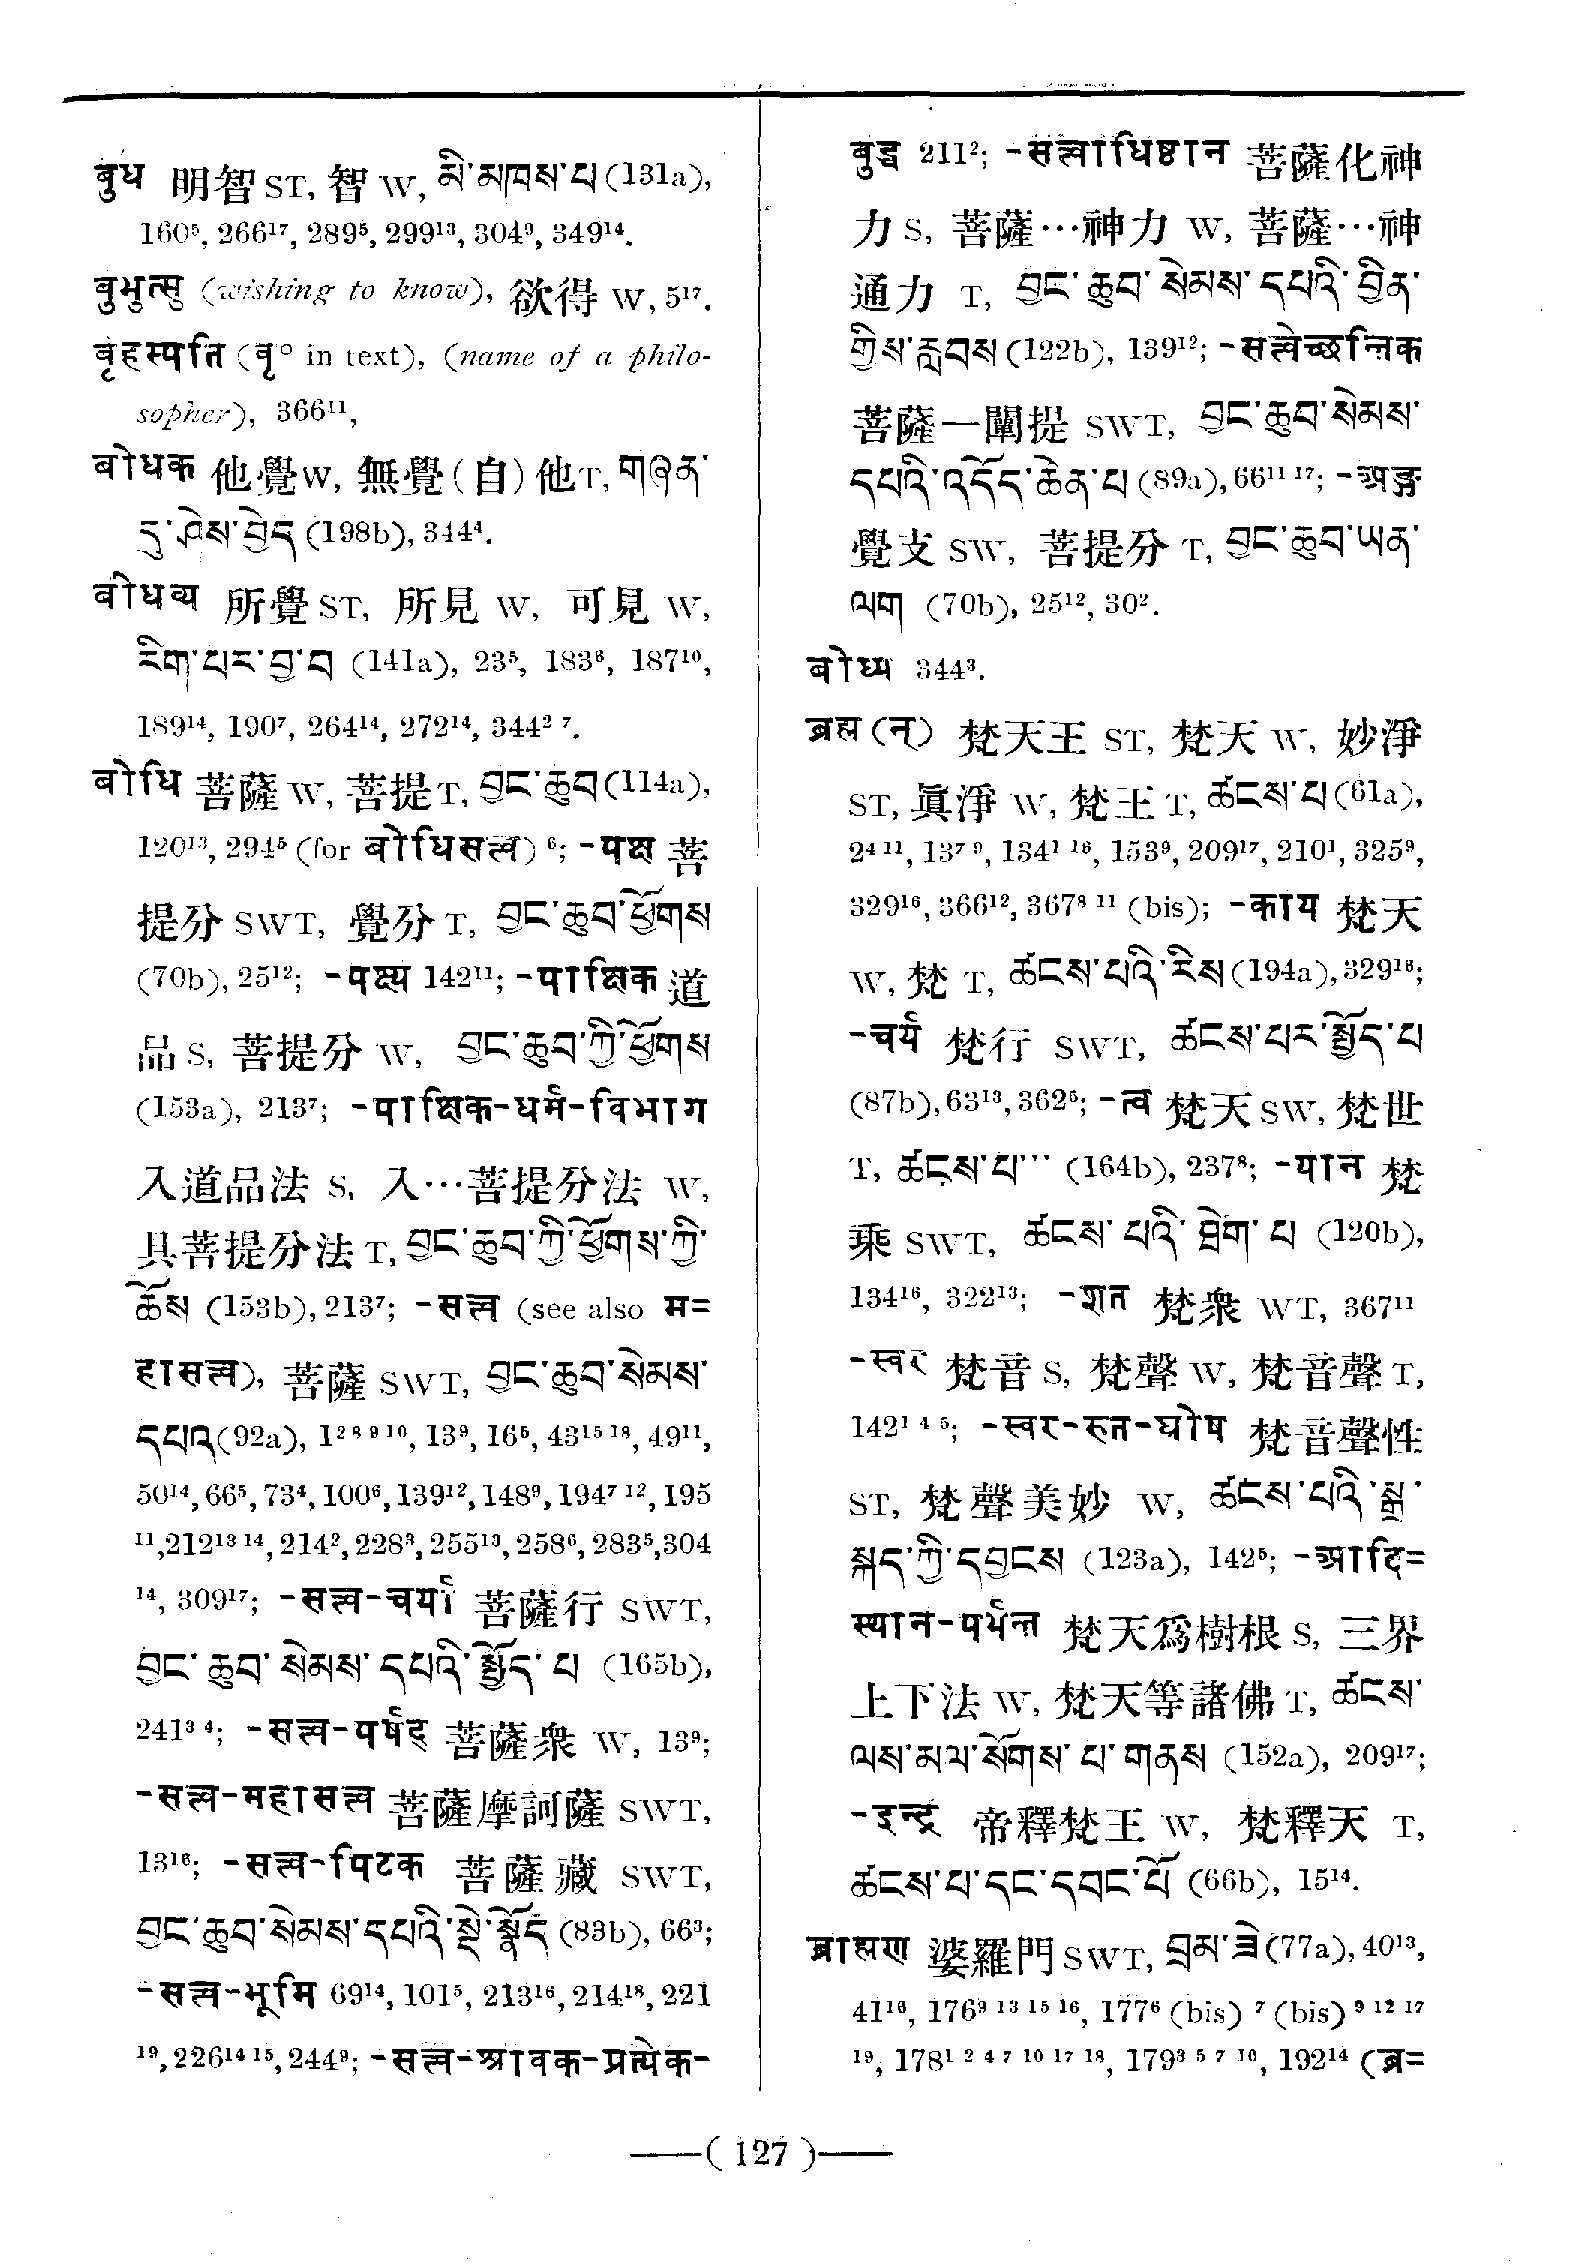 बुध 明智 ST, 智 W, མི་མཁས་པ (131a),
160⁵, 266¹⁷, 289⁵, 299¹³, 304⁹, 349¹⁴.
बुभुत्सु (wishing to know), 欲得 W, 5¹⁷.
बृहस्पति (वृ° in text), (name of a philo-
sopher), 366¹¹,
बोधक 他覺W, 無覺(自)他T, གཞན་
དུ་ཤེས་བྱེད (198b), 344⁴.
बोधव्य 所覺ST, 所見 W, 可見 W,
རིག་པར་བྱ་བ (141a), 23⁵, 183⁶, 187¹⁰,
189¹⁴, 190⁷, 264¹⁴, 272¹⁴, 344² ⁷.
बोधि 菩薩 W, 菩提T, བྱང་ཆུབ (114a),
120¹³, 294⁵ (for बोधिसत्त्व) ⁶; -पक्ष 菩
提分 SWT, 覺分 T, བྱང་ཆུབ་ཕྱོགས
(70b), 25¹²; -पक्ष्य 142¹¹; -पाक्षिक 道
品 S, 菩提分 W, བྱང་ཆུབ་ཀྱི་ཕྱོགས
(153a), 213⁷; -पाक्षिक-धर्म-विभाग
入道品法 S, 入…菩提分法 W,
具菩提分法 T, བྱང་ཆུབ་ཀྱི་ཕྱོགས་ཀྱི་
ཆོས (153b), 213⁷; -सत्त्व (see also म=
हासत्त्व), 菩薩 SWT, བྱང་ཆུབ་སེམས་
དཔའ (92a), 1² ⁸ ⁹ ¹⁰, 13⁹, 16⁵, 43¹⁵ ¹⁸, 49¹¹,
50¹⁴, 66⁵, 73⁴, 100⁶, 139¹², 148⁹, 194⁷ ¹², 195
¹¹, 212¹³ ¹⁴, 214², 228³, 255¹³, 258⁶, 283⁵, 304
¹⁴, 309¹⁷; -सत्त्व-चर्या 菩薩行 SWT,
བྱང་ཆུབ་སེམས་དཔའི་སྤྱོད་པ (165b),
241³ ⁴; -सत्त्व-पर्षद् 菩薩衆 W, 13⁹;
-सत्त्व-महासत्त्व 菩薩摩訶薩 SWT,
13¹⁶; -सत्त्व-पिटक 菩薩藏 SWT,
བྱང་ཆུབ་སེམས་དཔའི་སྡེ་སྣོད (83b), 66³;
-सत्त्व-भूमि 69¹⁴, 101⁵, 213¹⁶, 214¹⁸, 221
¹⁹, 226¹⁴ ¹⁵, 244⁹; -सत्त्व-श्रावक-प्रत्येक-
बुद्ध 211²; -सत्त्वाधिष्ठान 菩薩化神
力 S, 菩薩…神力 W, 菩薩…神
通力 T, བྱང་ཆུབ་སེམས་དཔའི་བྱིན་
གྱིས་རླབས (122b), 139¹²; -सत्त्वेच्छन्तिक
菩薩一闡提 SWT, བྱང་ཆུབ་སེམས་
དཔའི་འདོད་ཆེན་པ (89a), 66¹¹ ¹⁷; -अङ्ग
覺支 SW, 菩提分 T, བྱང་ཆུབ་ཡན་
ལག (70b), 25¹², 30².
बोध्य 344³.
ब्रह्म (न्) 梵天王 ST, 梵天 W, 妙淨
ST, 眞淨 W, 梵王 T, ཚངས་པ (61a),
2⁴ ¹¹, 13⁷ ⁹, 134¹ ¹⁶, 153⁹, 209¹⁷, 210¹, 325⁹,
329¹⁶, 366¹², 367⁸ ¹¹ (bis); -काय 梵天
W, 梵 T, ཚངས་པའི་རིས (194a), 329¹⁶;
-चर्य 梵行 SWT, ཚངས་པར་སྤྱོད་པ
(87b), 63¹³, 362⁵; -त्व 梵天 SW, 梵世
T, ཚངས་པ… (164b), 237⁸; -यान 梵
乘 SWT, ཚངས་པའི་ཐེག་པ (120b),
134¹⁶, 322¹³; -शत 梵衆 WT, 367¹¹
-स्वर 梵音 S, 梵聲 W, 梵音聲 T,
142¹ ⁴ ⁵; -स्वर-रुत-घोष 梵音聲性
ST, 梵聲美妙 W, ཚངས་པའི་སྒྲ་
སྐད་ཀྱི་དབྱངས (123a), 142⁵; -आदि=
स्थान-पर्यन्त 梵天爲樹根 S, 三界
上下法 W, 梵天等諸佛 T, ཚངས་
ལས་མལ་སོགས་པ་གནས (152a), 209¹⁷;
-इन्द्र 帝釋梵王 W, 梵釋天 T,
ཚངས་པ་དང་དབང་པོ (66b), 15¹⁴.
ब्राह्मण 婆羅門 SWT, བྲམ་ཟེ (77a), 40¹³,
41¹⁶, 176⁹ ¹³ ¹⁵ ¹⁶, 177⁶ (bis) ⁷ (bis) ⁹ ¹² ¹⁷
¹⁹, 178¹ ² ⁴ ⁷ ¹⁰ ¹⁷ ¹⁸, 179³ ⁵ ⁷ ¹⁰, 192¹⁴ (ब्र=
—( 127 )—